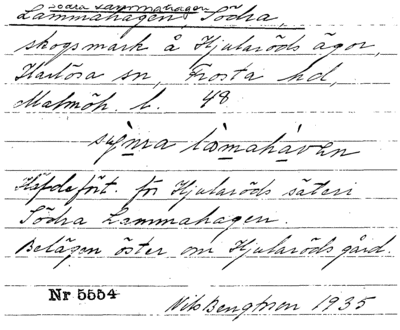 Södra Lammahagen
Lammahagen, Södra,
skogsmark å Hjularöds ägor,
Harlösa sn, Frosta hd,
Malmöh. l. 48
Häfdefört. för Hjularöds säteri
Södra Lammahagen.
Belägen öster om Hjularöds gård
Nr 5554
Nils Bengtsson 1935